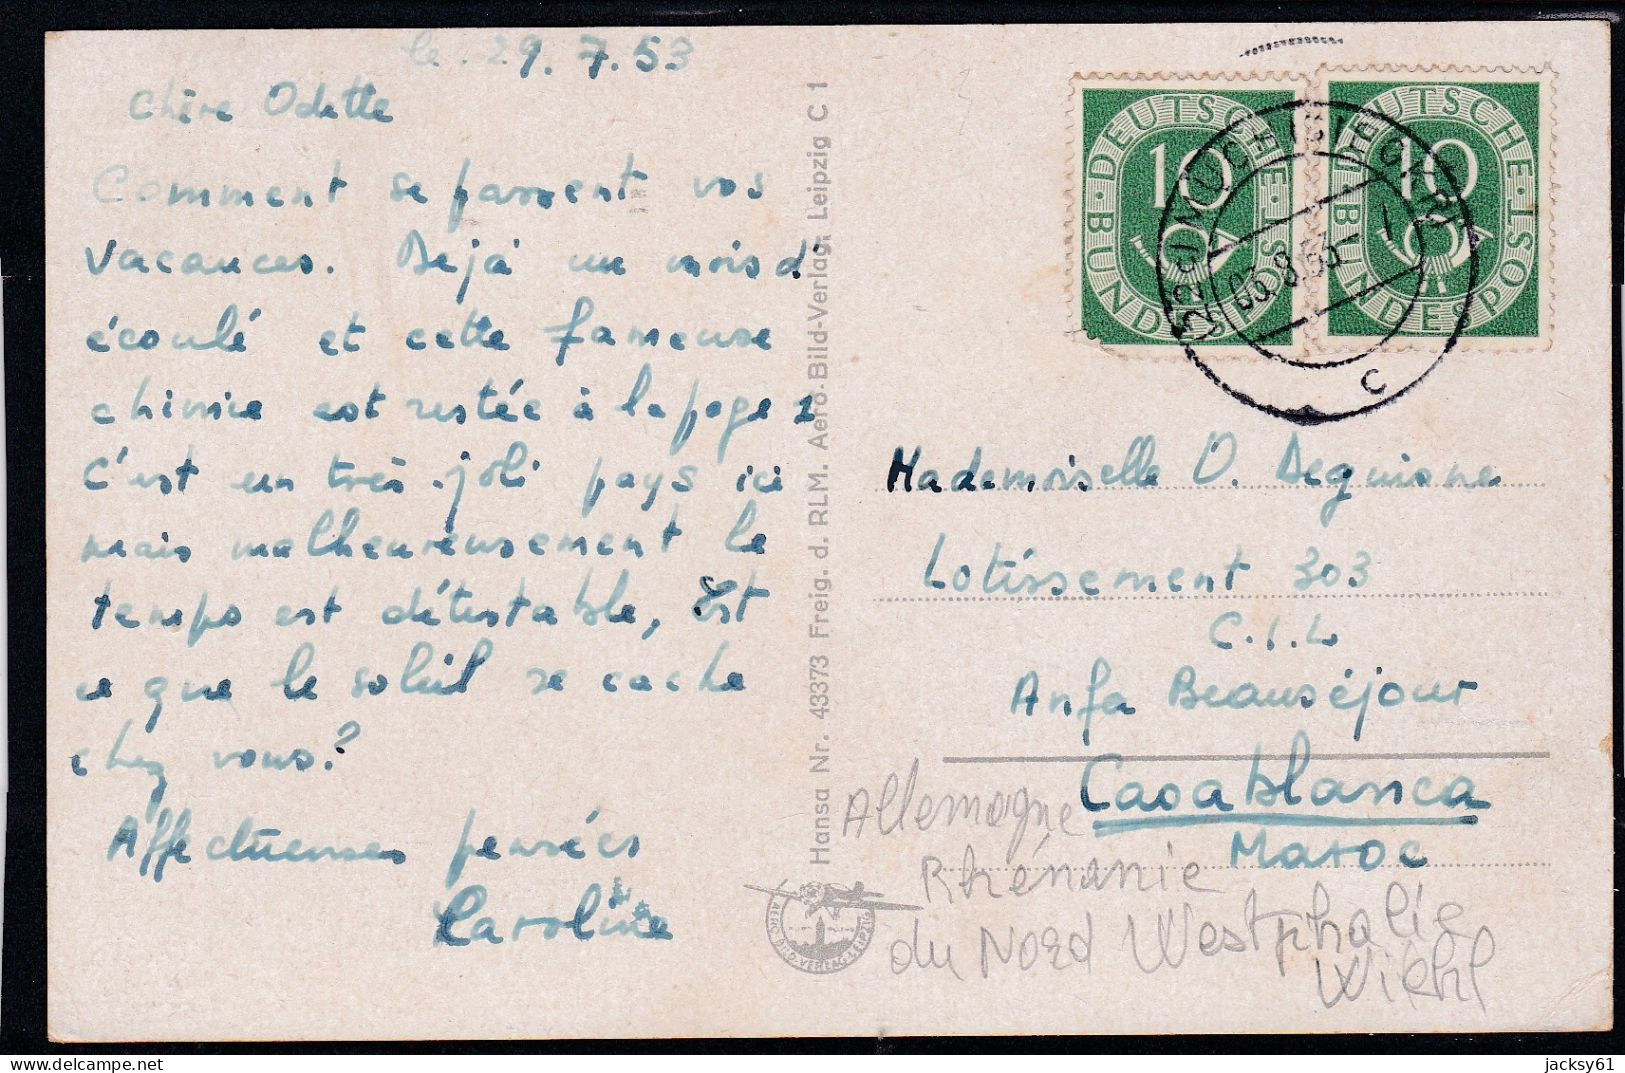 le. 29. 7. 53
Chère Odette
Comment se passent vos
vacances. Dejà un mois d'
écoulé et cette fameuse
chimie est restée à la page 1
C'est un très joli pays ici
mais malheureusement le
temps est détestable, Est
ce que le soleil se cache
chez vous?
Affectueuses pensées
Caroline
Hansa Nr. 43373 Freig. d. RLM. Aero-Bild-Verlag, Leipzig C 1
AERO-BILD-VERLAG-LEIPZIG
DEUTSCHE BUNDESPOST
10
DEUTSCHE BUNDESPOST
10
03.8.53
c
Mademoiselle O. Deguisne
Lotissement 303
C.I.L
Anfa Beauséjour
Casablanca
Maroc
Allemagne
Rhénanie
du Nord Westphalie
Wiehl
jacksy61